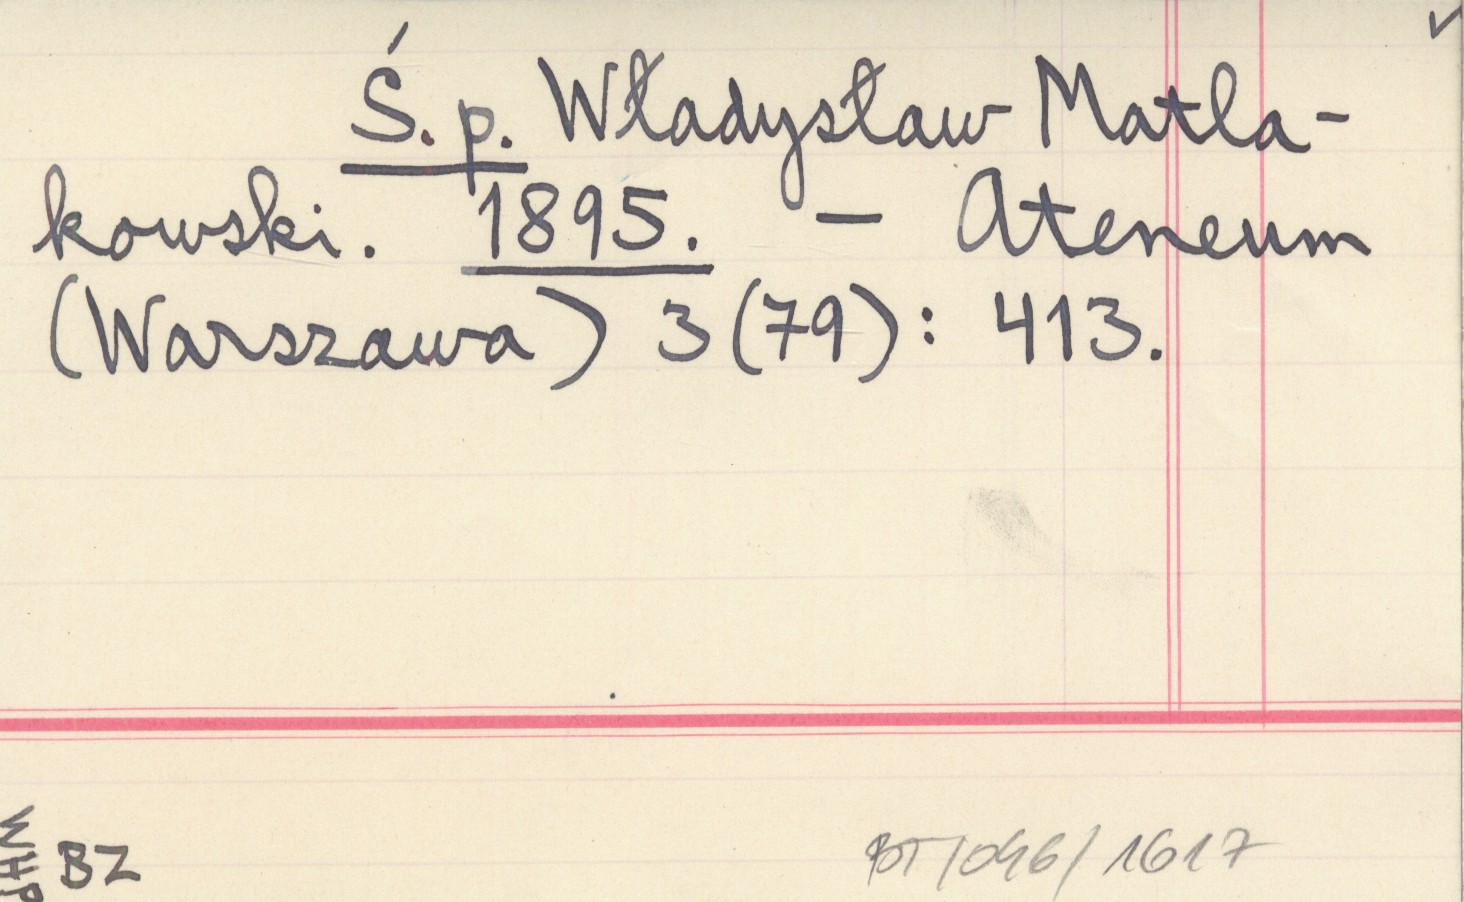 Ś. p. Władysław Matla-
kowski. 1895. — Ateneum
(Warszawa) 3 (79): 413.
WHP
BZ
BT/046/1617